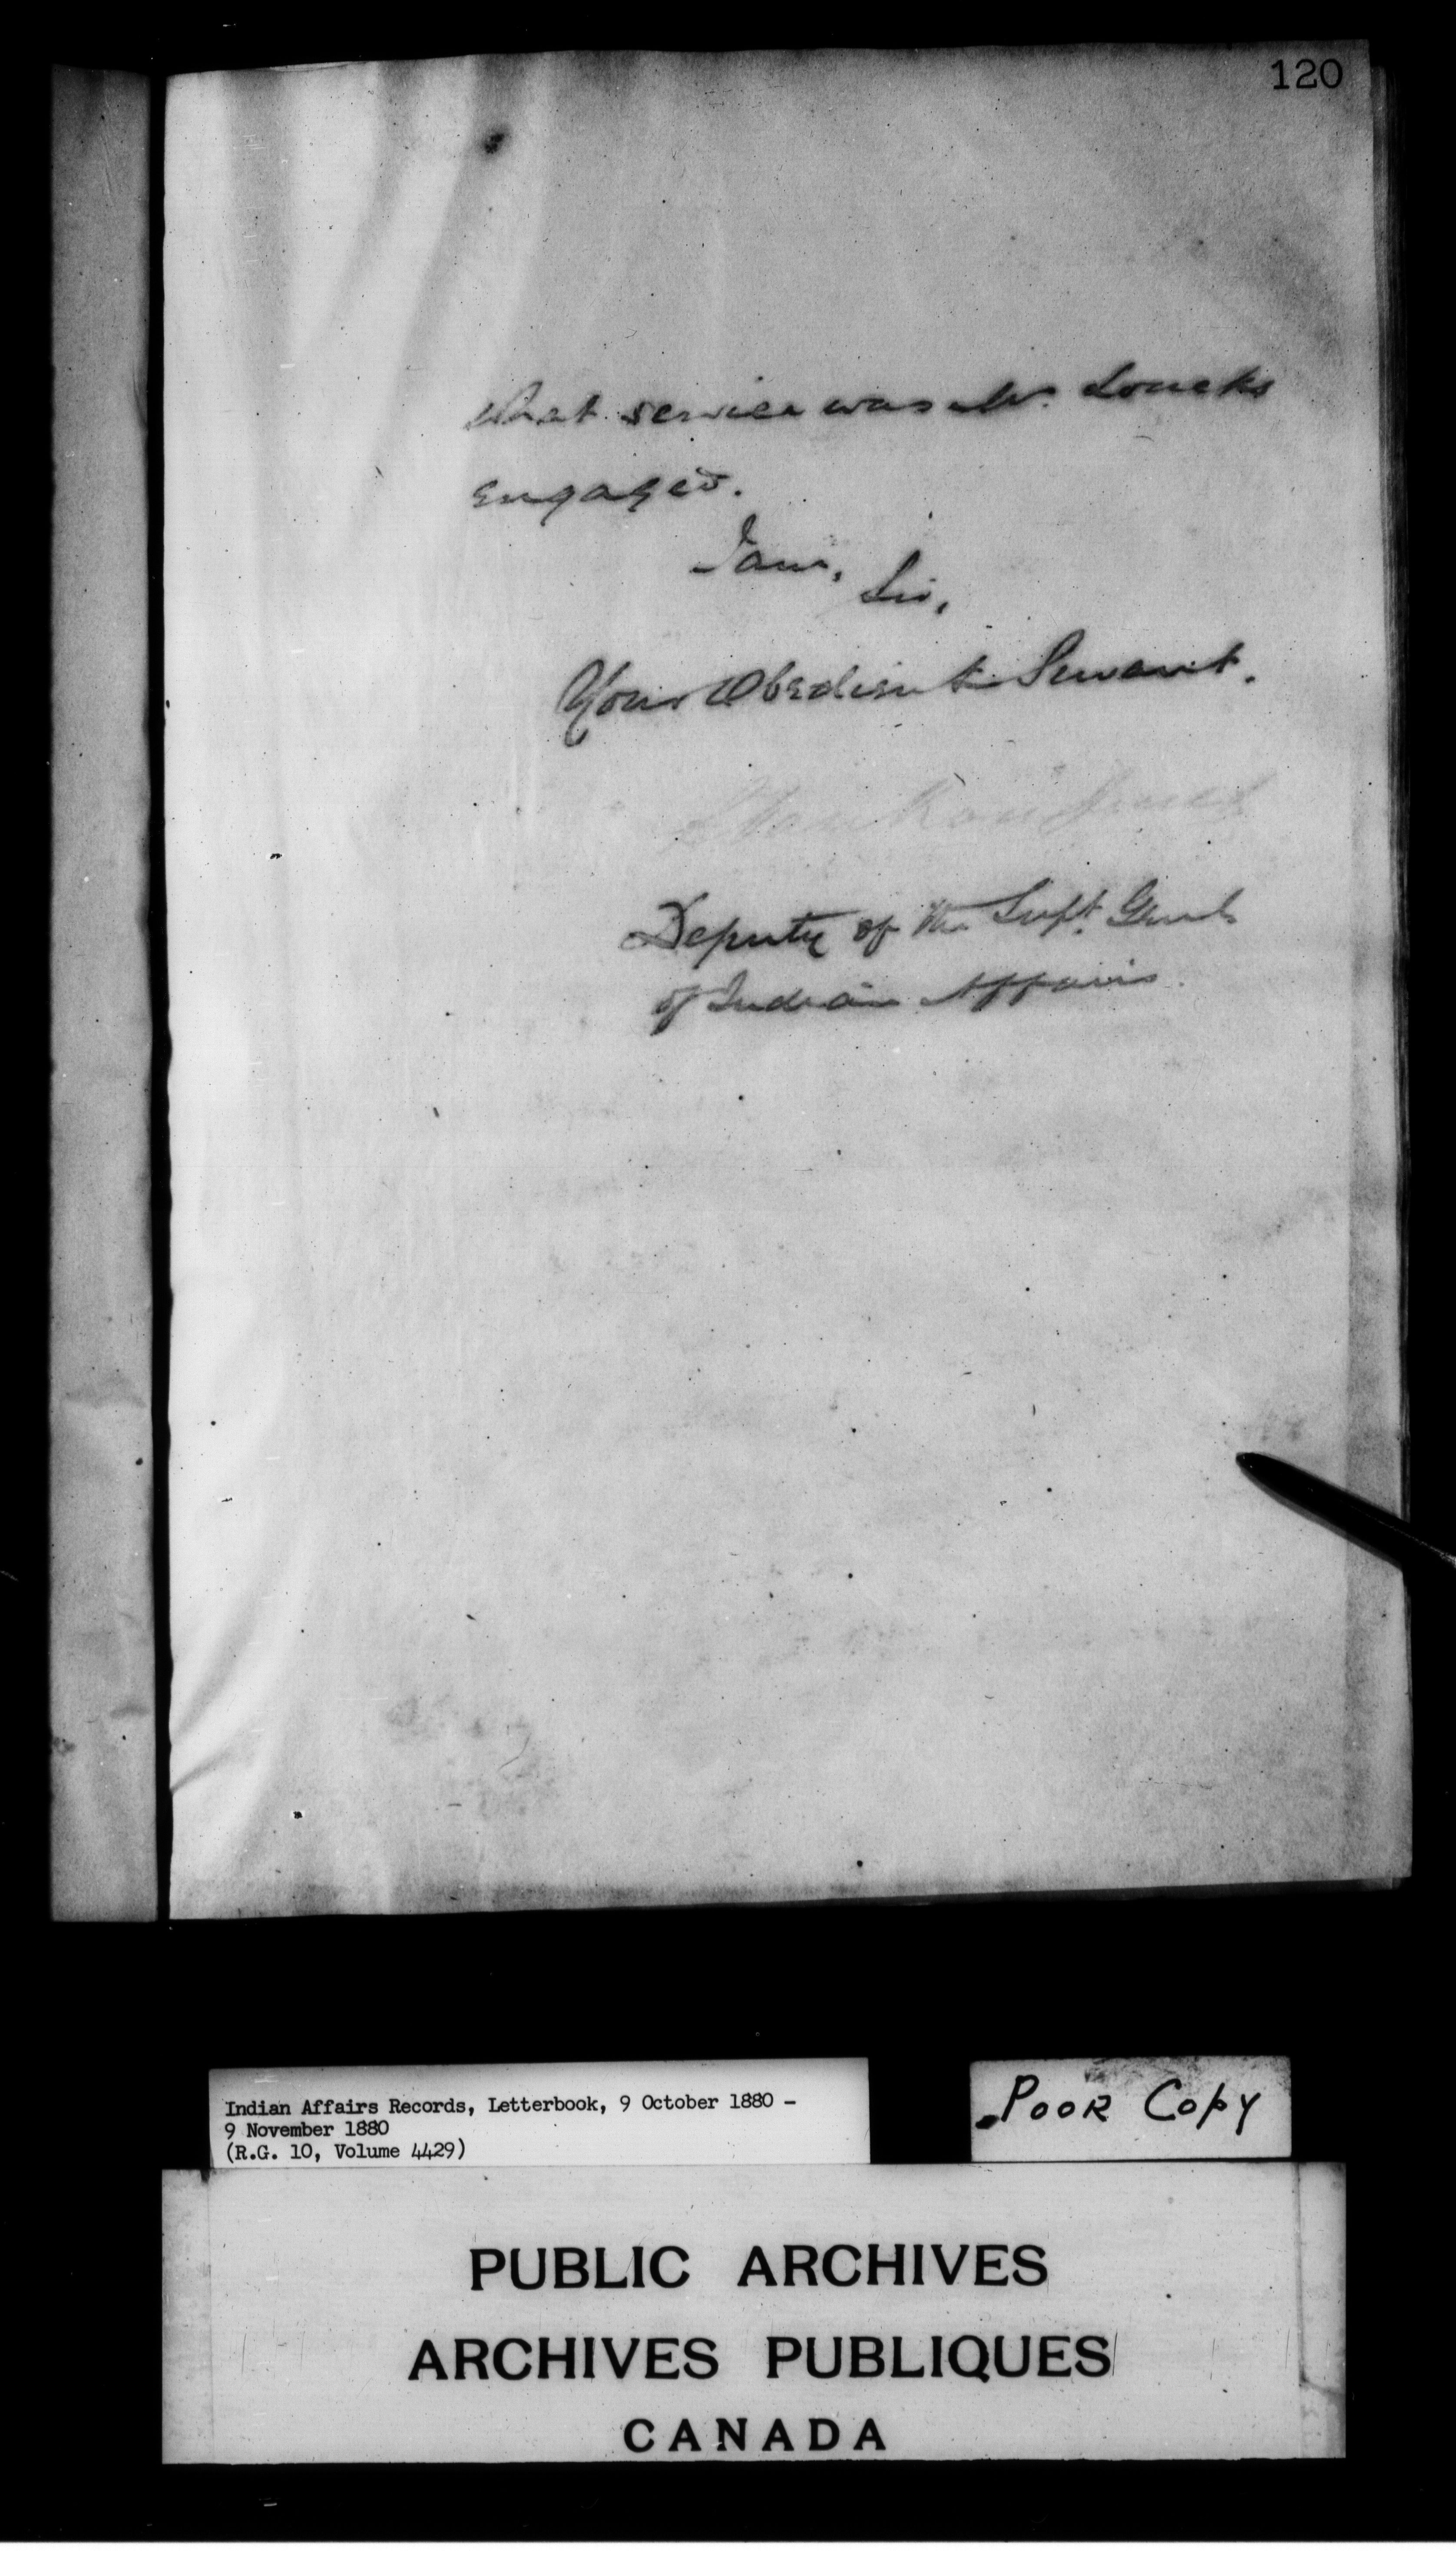 120
What service was Mr. Loucks
engaged.
I am,
Sir,
Your Obedient Servant.
Deputy of the Supt. Genl.
of Indian Affairs.
Indian Affairs Records, Letterbook, 9 October 1880 -
9 November 1880
(R.G. 10, Volume 4429)
POOR COPY
PUBLIC ARCHIVES
ARCHIVES PUBLIQUES
CANADA